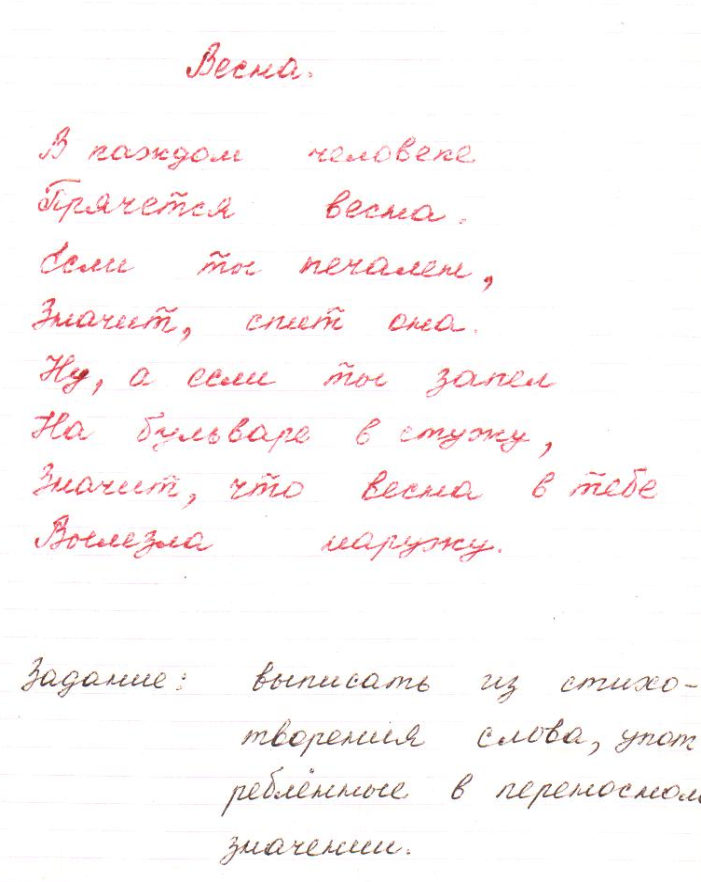 Весна.
В каждом человеке
Прячется весна.
Если ты печален,
Значит, спит она.
Ну, а если ты запел
На бульваре в стужу,
Значит, что весна в тебе
Вылезла наружу.
Задание: выписать из стихо-
творения слова, упот
реблённые в переносном
значении.